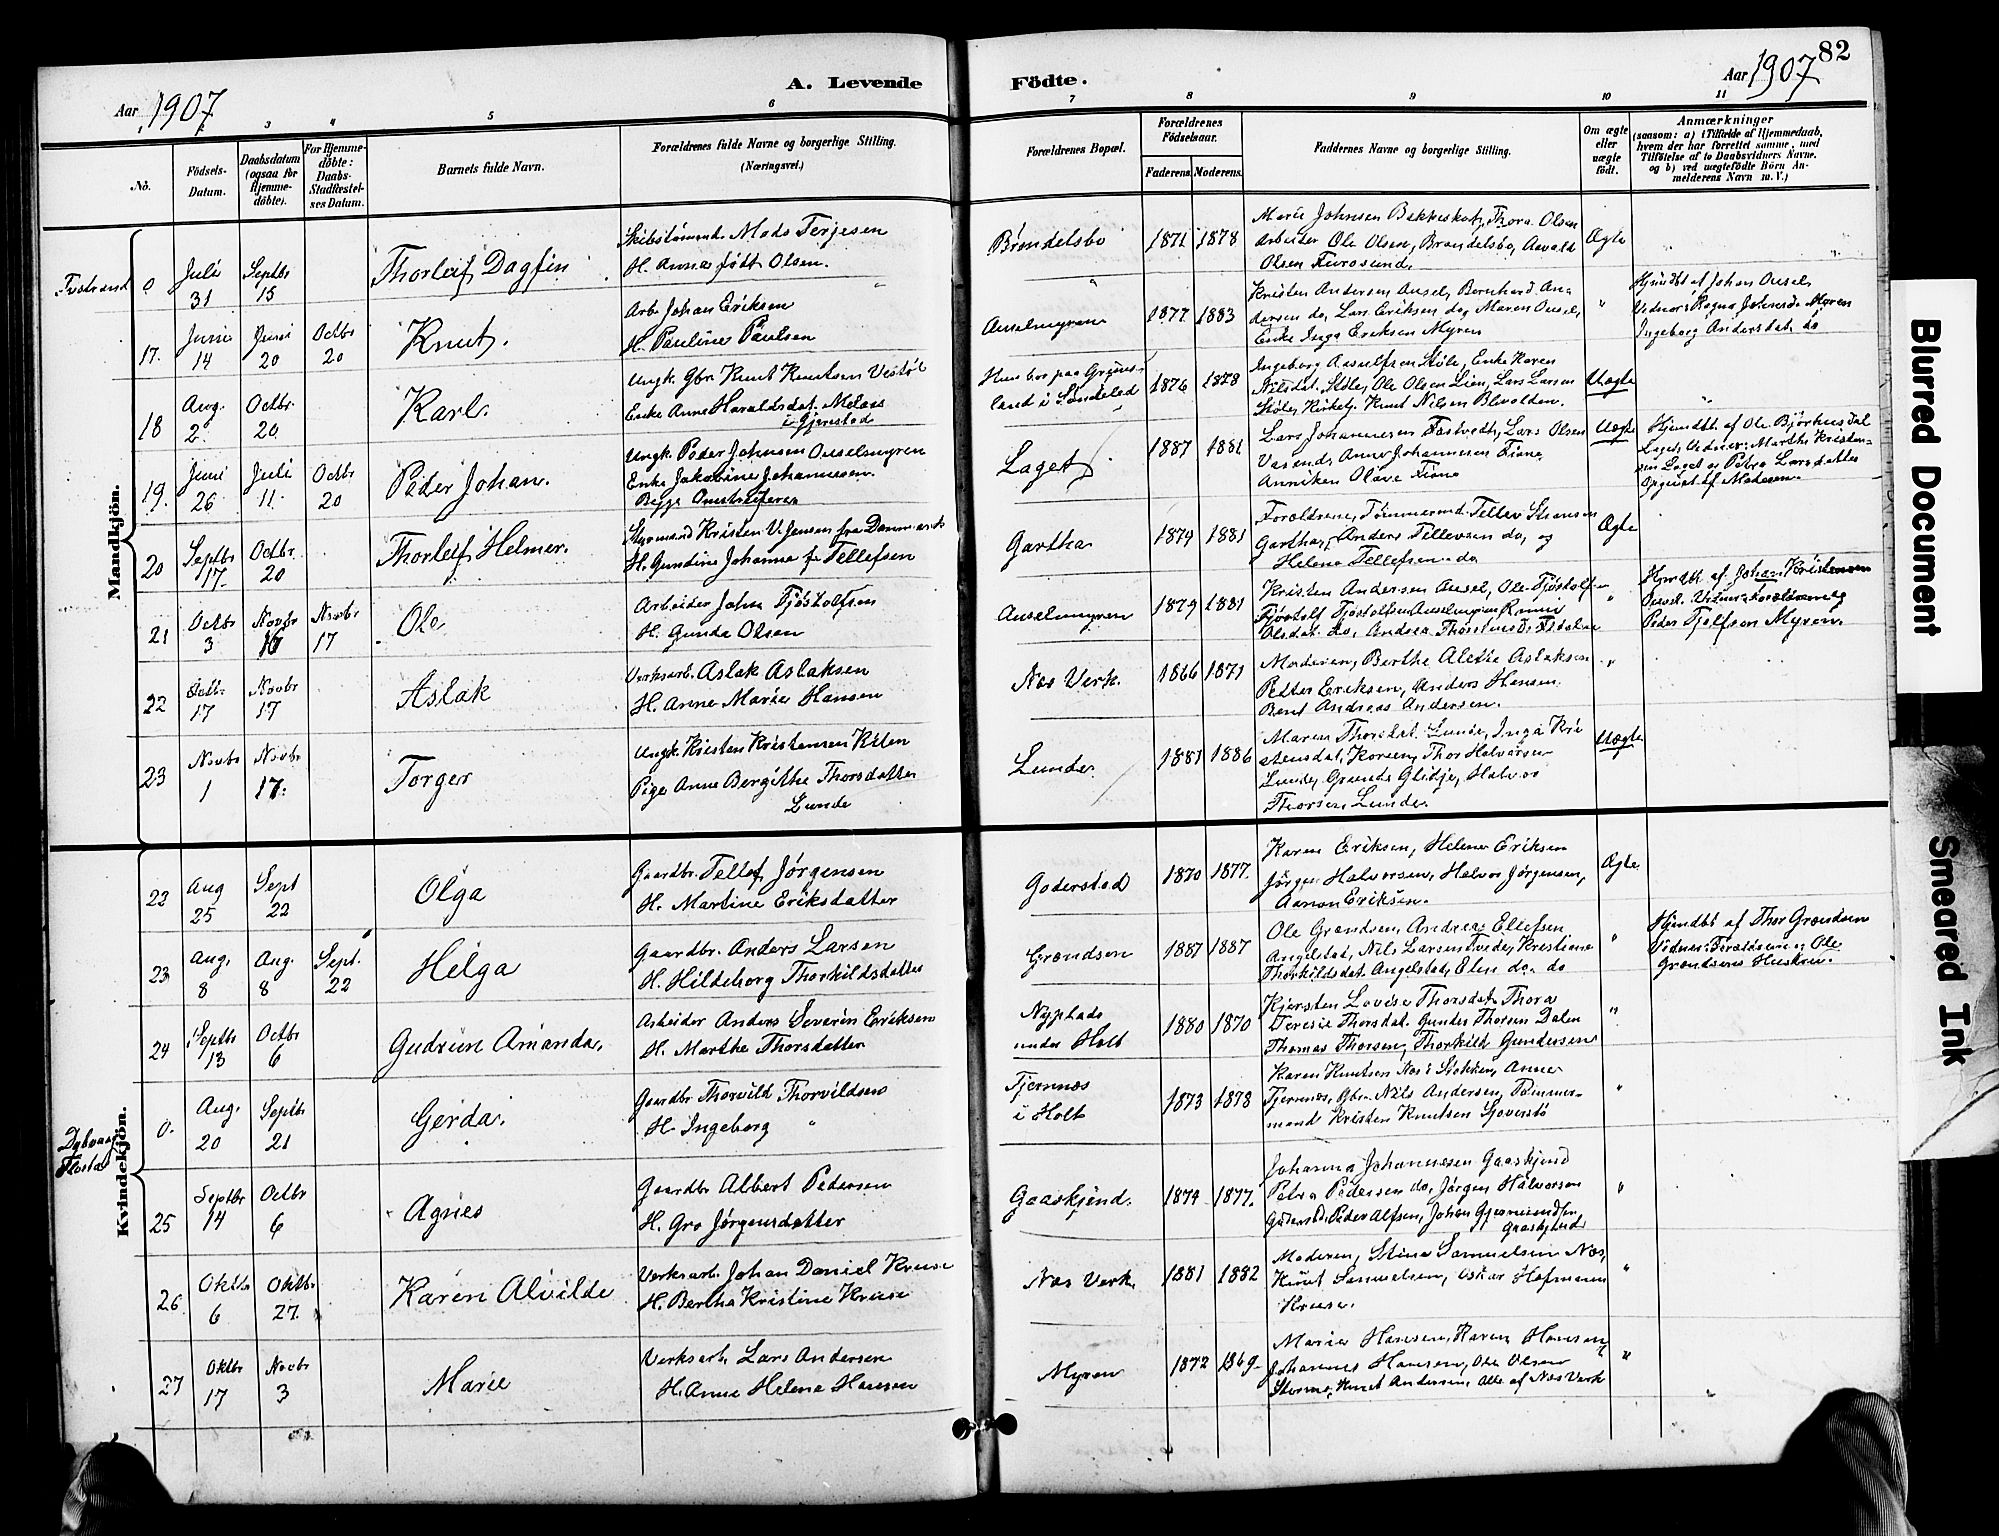 82
Aar 1907
A. Levende
Födte.
Aar 1907
3 4 5 6 7 8 9 10 11
No.
Födsels-
Datum.
Daabsdatum
(ogsaa for
Hjemme-
döbte).
For Hjemme-
döbte:
Daabs-
Stadfæstel-
ses Datum.
Barnets fulde Navn.
Forældrenes fulde Navne og borgerlige Stilling.
(Næringsvei.)
Forældrenes Bopæl.
Forældrenes
Födselsaar.
Faderens. Moderens.
Faddernes Navne og borgerlige Stilling.
Om ægte
eller
uægte
födt.
Anmærkninger
(saasom: a) i Tilfælde af Hjemmedaab,
hvem der har forrettet samme, med
Tilföielse af to Daabsvidners Navne,
og b) ved uægtefödte Börn An-
melderens Navn m. V.)
Mandkjön.
0 Juli 31 Septbr 15
Thorleif Dagfin
Mads Terjesen
H. Anna født Olsen.
Brøndelsbo 1871 1878
Marie Johnsen Bakkeskot, Thora Olsen
Arbeider Ole Olsen, Brøndelsbo, Aavald
Olsen Furøsund.
Ægte
17. Juni 14 Juni 20 Octbr 20
Knut.
Arb. Johan Eriksen
H. Pauline Paulsen
Auselmyren 1877 1883
Kristen Andersen Ausel, Bernhard An-
dersen do, Lars Eriksen do, Maren Ausel,
Enke Inga Eriksen Myren
"
Hjmdbt af Johan Ausel
Ingeborg Andersdat. do
18 Aug. 2. Octbr. 20
Karl.
Ungk. Gbr. Knut Knutsen Vestøl
Enke Anne Haraldsdat. Melaas
i Gjerstad
1876 1878
Ingeborg Aasulfsen Støle, Enke Karen
Nilsdat. Støle, Ole Olsen Lien, Lars Larsen
Støle, Kirketj. Knut Nilsen Blevolden.
Uægte
19. Juni 26 Juli 11. Octbr 20
Peder Johan.
Ungk. Peder Johnsen Auselmyren
Enke Jakobine Johannesen.
Begge Omstreifere
Laget 1887 1881
Lars Johannesen Tostvedt, Lars Olsen
Anne Johannesen Fiane
Anniken Olava Fiane
Uægte
Hjemdbt. af Ole Bjørhusdal
Laget. Vidner: Marthe Kristen-
sen Laget og Petra Larsdatter
Opgivet af Moderen.
20 Septbr 17. Octbr. 20
Thorleif Helmer.
Styrmand Kristen V. Jensen fra Danmark
H. Gundine Johanna f. Tellefsen
Gartha 1879 1881
Forældrene, Tømmermd. Tellef
Gartha, Anders Tellevsen do, og
Helene Tellefsen do
Ægte
21 Octbr 3 Novbr Novbr 17
Ole
Arbeider John Fjøstolfsen
H. Gunda Olsen
Auselmyren 1879 1881
Kristen Andersen Ausel, Ole Fjøstolfsen
"
Hjmdbt. af Johan Kristensen
Ausel. Vidner: Forældrene og
22 Octbr. 17 Novbr 17
Aslak
Verksarb. Aslak Aslaksen
H. Anne Marie Hansen
Næs Verk. 1866 1871
Moderen, Berthe Alette Aslaksen
Petter Eriksen, Anders Hansen
Bent Andreas Andersen.
"
23 Novbr 1 Novbr 17.
Torger
Ungk. Kristen Kristensen Kilen
Pige Anne Bergithe Thorsdatter
Lunde
Lunde. 1881 1886
Maren Thorsdat. Lunde, Inga Kri
stensdat. Korsen, Thor Halvorsen
Lunde, Halvor
Thorsen Lunde.
Uægte
Kvindekjön.
22 Aug 25 Sept 22
Olga
Gaardbr. Tellef Jørgensen
H. Martine Eriksdatter
Goderstad 1870 1877.
Karen Eriksen, Helene Eriksen
Jørgen Halvorsen, Halvor Jørgensen,
Aanon Eriksen.
Ægte
23 Aug. 8 Aug. 8 Sept. 22
Helga
Gaardbr. Anders Larsen
H. Hildeborg Thorkildsdatter
Grøndsen 1887 1887
Ole Grøndsen, Andreas Ellefsen
Angelstad, Nils Larsen Tvede, Kristiane
Thorkildsdat. Angelstad, Elen do. do
"
Hjmdbt af Thor Grøndsen
Vidner: Forældrene og Ole
Grøndsens Huskone.
24 Septbr 13 Octbr 6
Gudrun Amanda.
Arbeider Anders Severin Eriksen
H. Marthe Thorsdatter
Nyplads
under Holt 1880 1870
Kjersten Lovise Thorsdat. Thora
Teresie Thorsdat. Gunder Thorsen Dalen
Thomas Thorsen, Thorkild Gundersen
"
0. Aug. 20 Septbr 21
Gerda.
Gaardbr Thorvild Thorvildsen
H. Ingeborg "
Tjernnæs
i Holt 1873 1878
Karen Knutsen Næs i Stokken, Anne
Tjernnæs, Gbr. Nils Andersen, Tømmer-
mand Kristen Knutsen
"
25 Septbr 14 Octbr 6
Agnes
Gaardbr Albert Pedersen
H. Gro Jørgensdatter
Gaaskjend. 1874 1877.
Johanna Johannesen Gaaskjend
Petra Pedersen do, Jørgen Halvorsen
Goderstad, Peder Alfsen, Johan
Gaaskjend
"
26 Oktbr 6 Oktbr 27.
Karen Alvilde
Verksarb. Johan Daniel Kruse
H. Berthe Kristine Kruse
Næs Verk. 1881 1882
Moderen, Stine Samuelsen Næs,
Knut Samuelsen, Oskar Hofmann
Kruse.
"
27 Oktbr 17 Novbr 3
Marie
Verksarb. Lars Andersen
H. Anne Helene Hansen
Myren 1872 1869.
Marie Hansen, Karen Hansen
Johannes Hansen, Ole Olsen
Knut Andersen, Alle af Næs Verk
"
Blurred Document
Smeared Ink